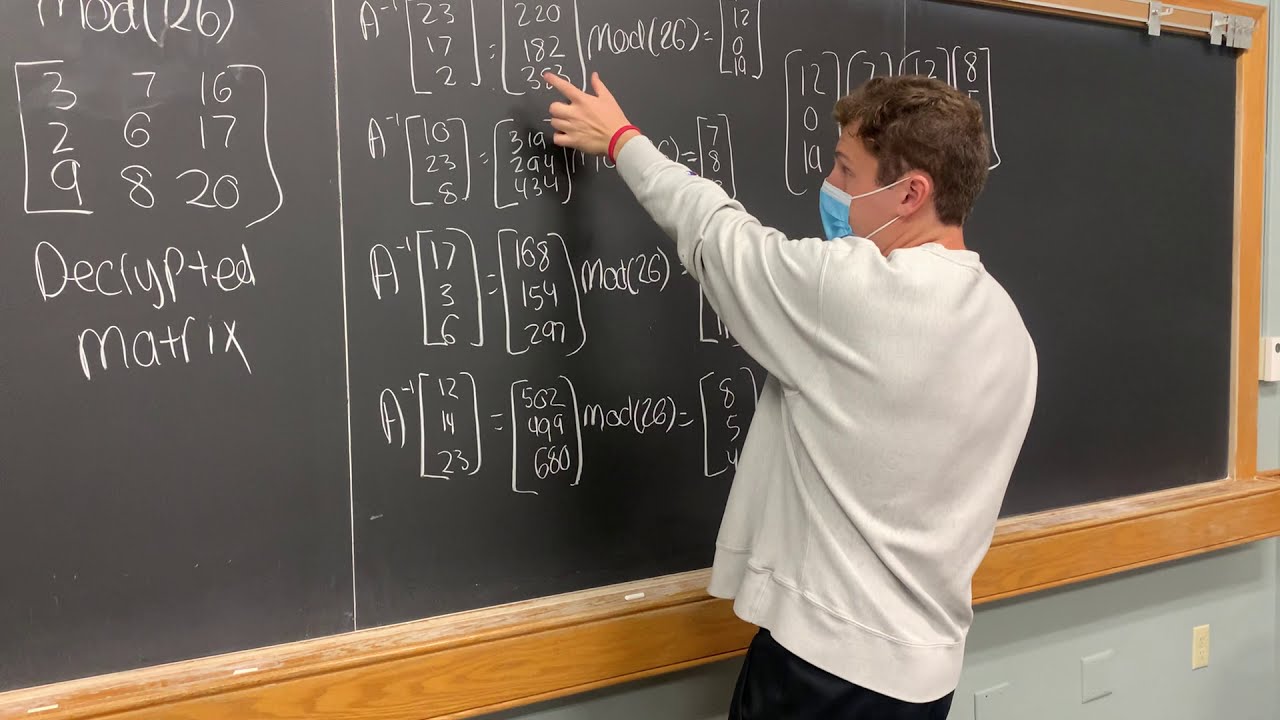 Mod(26)
3 7 16
2 6 17
9 8 20
Decrypted
matrix
A⁻¹ [23 17 2] = [220 182 353] Mod(26) = [12 0 19]
A⁻¹ [10 23 8] = [319 294 434] = [7 8
A⁻¹ [17 3 6] = [168 154 297] Mod(26) =
A⁻¹ [12 14 23] = [502 499 680] Mod(26) = [8 5 4
[12 0 19] [7 [12 [8